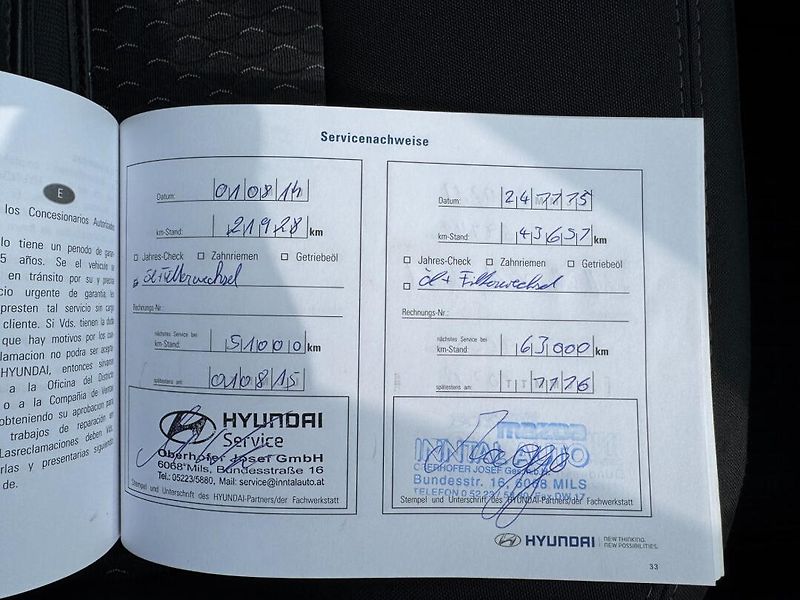 E
los Concesionarios Autorizados
lo tiene un periodo de garan-
5 años. Se el vehículo se
en tránsito por su y precisa
cio urgente de garantía les
presten tal servicio sin cargo
cliente. Si Vds. tienen la duda
que hay motivos por los cua-
clamacion no podra ser acepta
HYUNDAI, entonces sírvanse
a la Oficina del Distrito
o a la Compañía de Ventas
obteniendo su aprobación para
trabajos de reparación en
Lasreclamaciones deben Vds.
rlas y presentarlas siguiendo
de.
Servicenachweise
Datum: 010814
km-Stand: 21928 km
Jahres-Check Zahnriemen Getriebeöl
Öl+Filterwechsel
Rechnungs-Nr.:
nächstes Service bei
km-Stand: 51000 km
spätestens am: 010815
HYUNDAI
Service
Oberhofer Josef GmbH
6068 Mils, Bundesstraße 16
Tel.: 05223/5880, Mail: service@inntalauto.at
Stempel und Unterschrift des HYUNDAI-Partners/der Fachwerkstatt
Datum: 241115
km-Stand: 43657 km
Jahres-Check Zahnriemen Getriebeöl
Öl+ Filterwechsel
Rechnungs-Nr.:
nächstes Service bei
km-Stand: 63000 km
spätestens am: 1126
mazda
INNTAL AUTO
OBERHOFER JOSEF
Bundesstr. 16, 6068 MILS
TELEFON 0 52 23 / 58 80 / Fax DW 17
Stempel und Unterschrift des HYUNDAI-Partners/der Fachwerkstatt
HYUNDAI NEW THINKING.
NEW POSSIBILITIES.
33